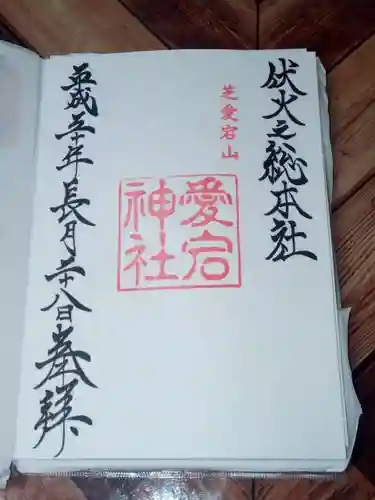 伏火之総本社
芝愛宕山
愛宕
神社
平成三十年長月二十八日奉拝